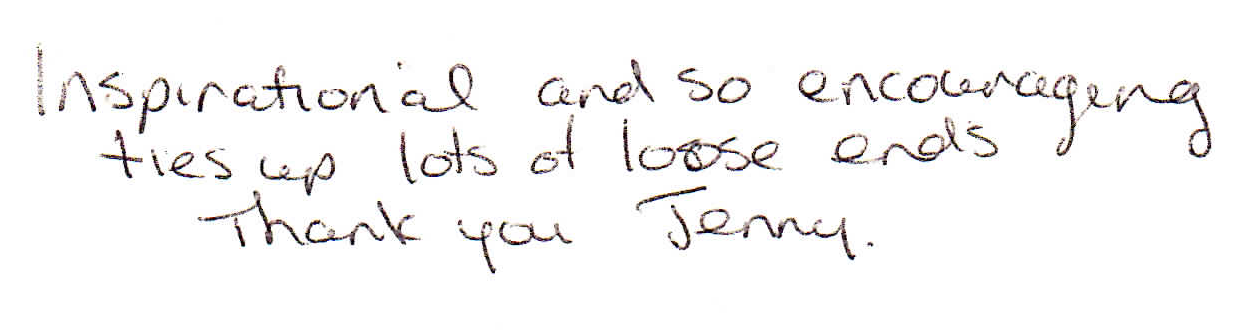 Inspirational and so encouraging
ties up lots of loose ends
Thank you Jenny.